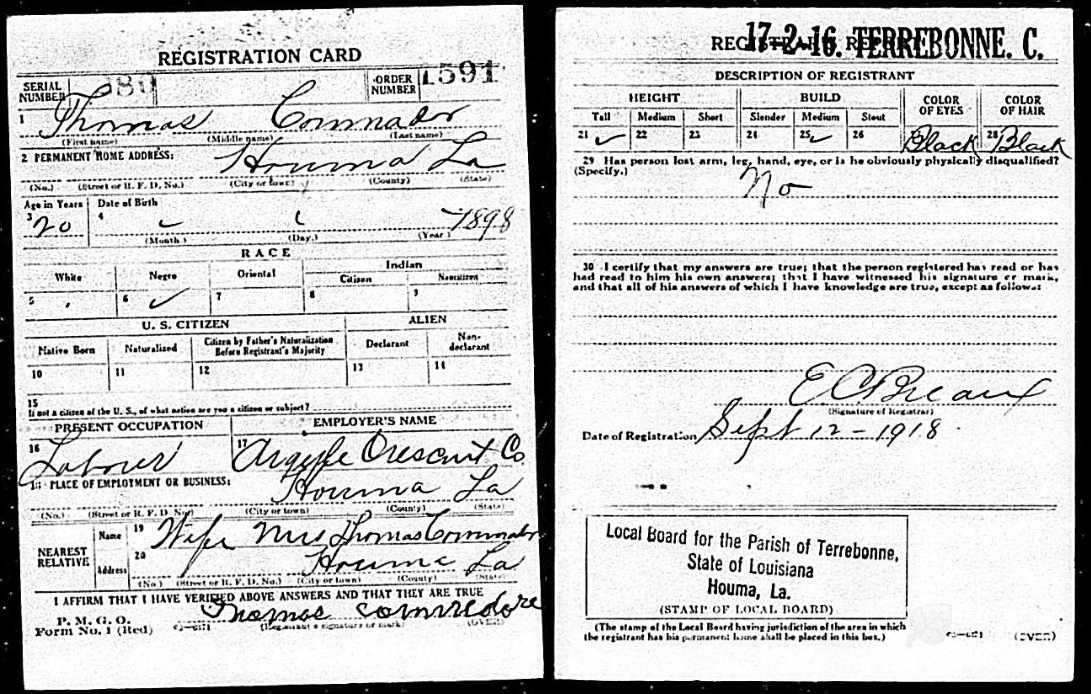 REGISTRATION CARD
SERIAL NUMBER 380 ORDER NUMBER 1591
1 Thomas Commador
(First name) (Middle name) (Last name)
2 PERMANENT HOME ADDRESS: Houma La
(No.) (Street or R. F. D. No.) (City or town) (County) (State)
Age in Years Date of Birth
3 20 4 1898
(Month.) (Day.) (Year.)
RACE
White Negro Oriental Indian
Citizen Noncitizen
5 6 ✓ 7 8 9
U. S. CITIZEN ALIEN
Native Born Naturalized Citizen by Father's Naturalization Before Registrant's Majority Declarant Non-declarant
10 11 12 13 14
15
If not a citizen of the U. S., of what nation are you a citizen or subject?
PRESENT OCCUPATION EMPLOYER'S NAME
16 Laborer 17 Argyle Crescent Co
18 PLACE OF EMPLOYMENT OR BUSINESS: Houma La
(No.) (Street or R. F. D. No.) (City or town) (County) (State)
NEAREST RELATIVE Name 19 Wife Mrs Thomas Commador
Address 20 Houma La
(No.) (Street or R. F. D. No.) (City or town) (County) (State)
I AFFIRM THAT I HAVE VERIFIED ABOVE ANSWERS AND THAT THEY ARE TRUE
P. M. G. O.
Form No. 1 (Red) Thomas commedore
(Registrant's signature or mark) (OVER)
REGISTRAR'S REPORT
17-2-16. TERREBONNE. C.
DESCRIPTION OF REGISTRANT
HEIGHT BUILD COLOR OF EYES COLOR OF HAIR
Tall Medium Short Slender Medium Stout
21 ✓ 22 23 24 25 ✓ 26 Black 28 Black
29 Has person lost arm, leg, hand, eye, or is he obviously physically disqualified?
(Specify.) No
30 I certify that my answers are true; that the person registered has read or has
had read to him his own answers; that I have witnessed his signature or mark,
and that all of his answers of which I have knowledge are true, except as follows:
E C Breaux
(Signature of Registrar)
Date of Registration Sept 12-1918
Local Board for the Parish of Terrebonne,
State of Louisiana
Houma, La.
(STAMP OF LOCAL BOARD)
(The stamp of the Local Board having jurisdiction of the area in which
the registrant has his permanent home shall be placed in this box.)
(OVER)